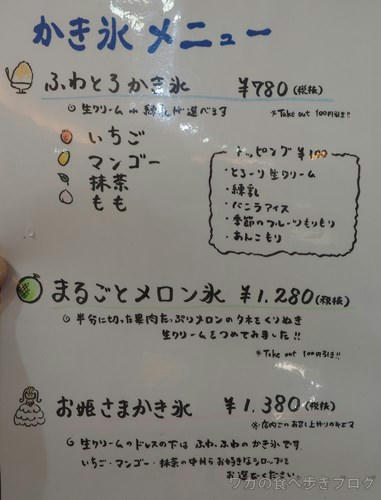 かき氷 メニュー
ふわとろかき氷 ¥780(税抜)
◎ 生クリーム or 練乳が選べます ※Take out 100円引き!!
いちご
マンゴー
抹茶
もも
トッピング ¥100
・とろーり生クリーム
・練乳
・バニラアイス
・季節のフルーツもりもり
・あんこもり
まるごとメロン氷 ¥1.280(税抜)
◎ 半分に切った果肉たっぷりメロンのタネをくりぬき
生クリームをつめてみました!!
※Take out 100円引き!!
お姫さまかき氷 ¥1.380(税抜)
※店内でのお召し上がりのみです
◎ 生クリームのドレスの下は ふわふわの かき氷です。
いちご・マンゴー・抹茶の中からお好きなシロップを
お選びください。
ツカの食べ歩きブログ